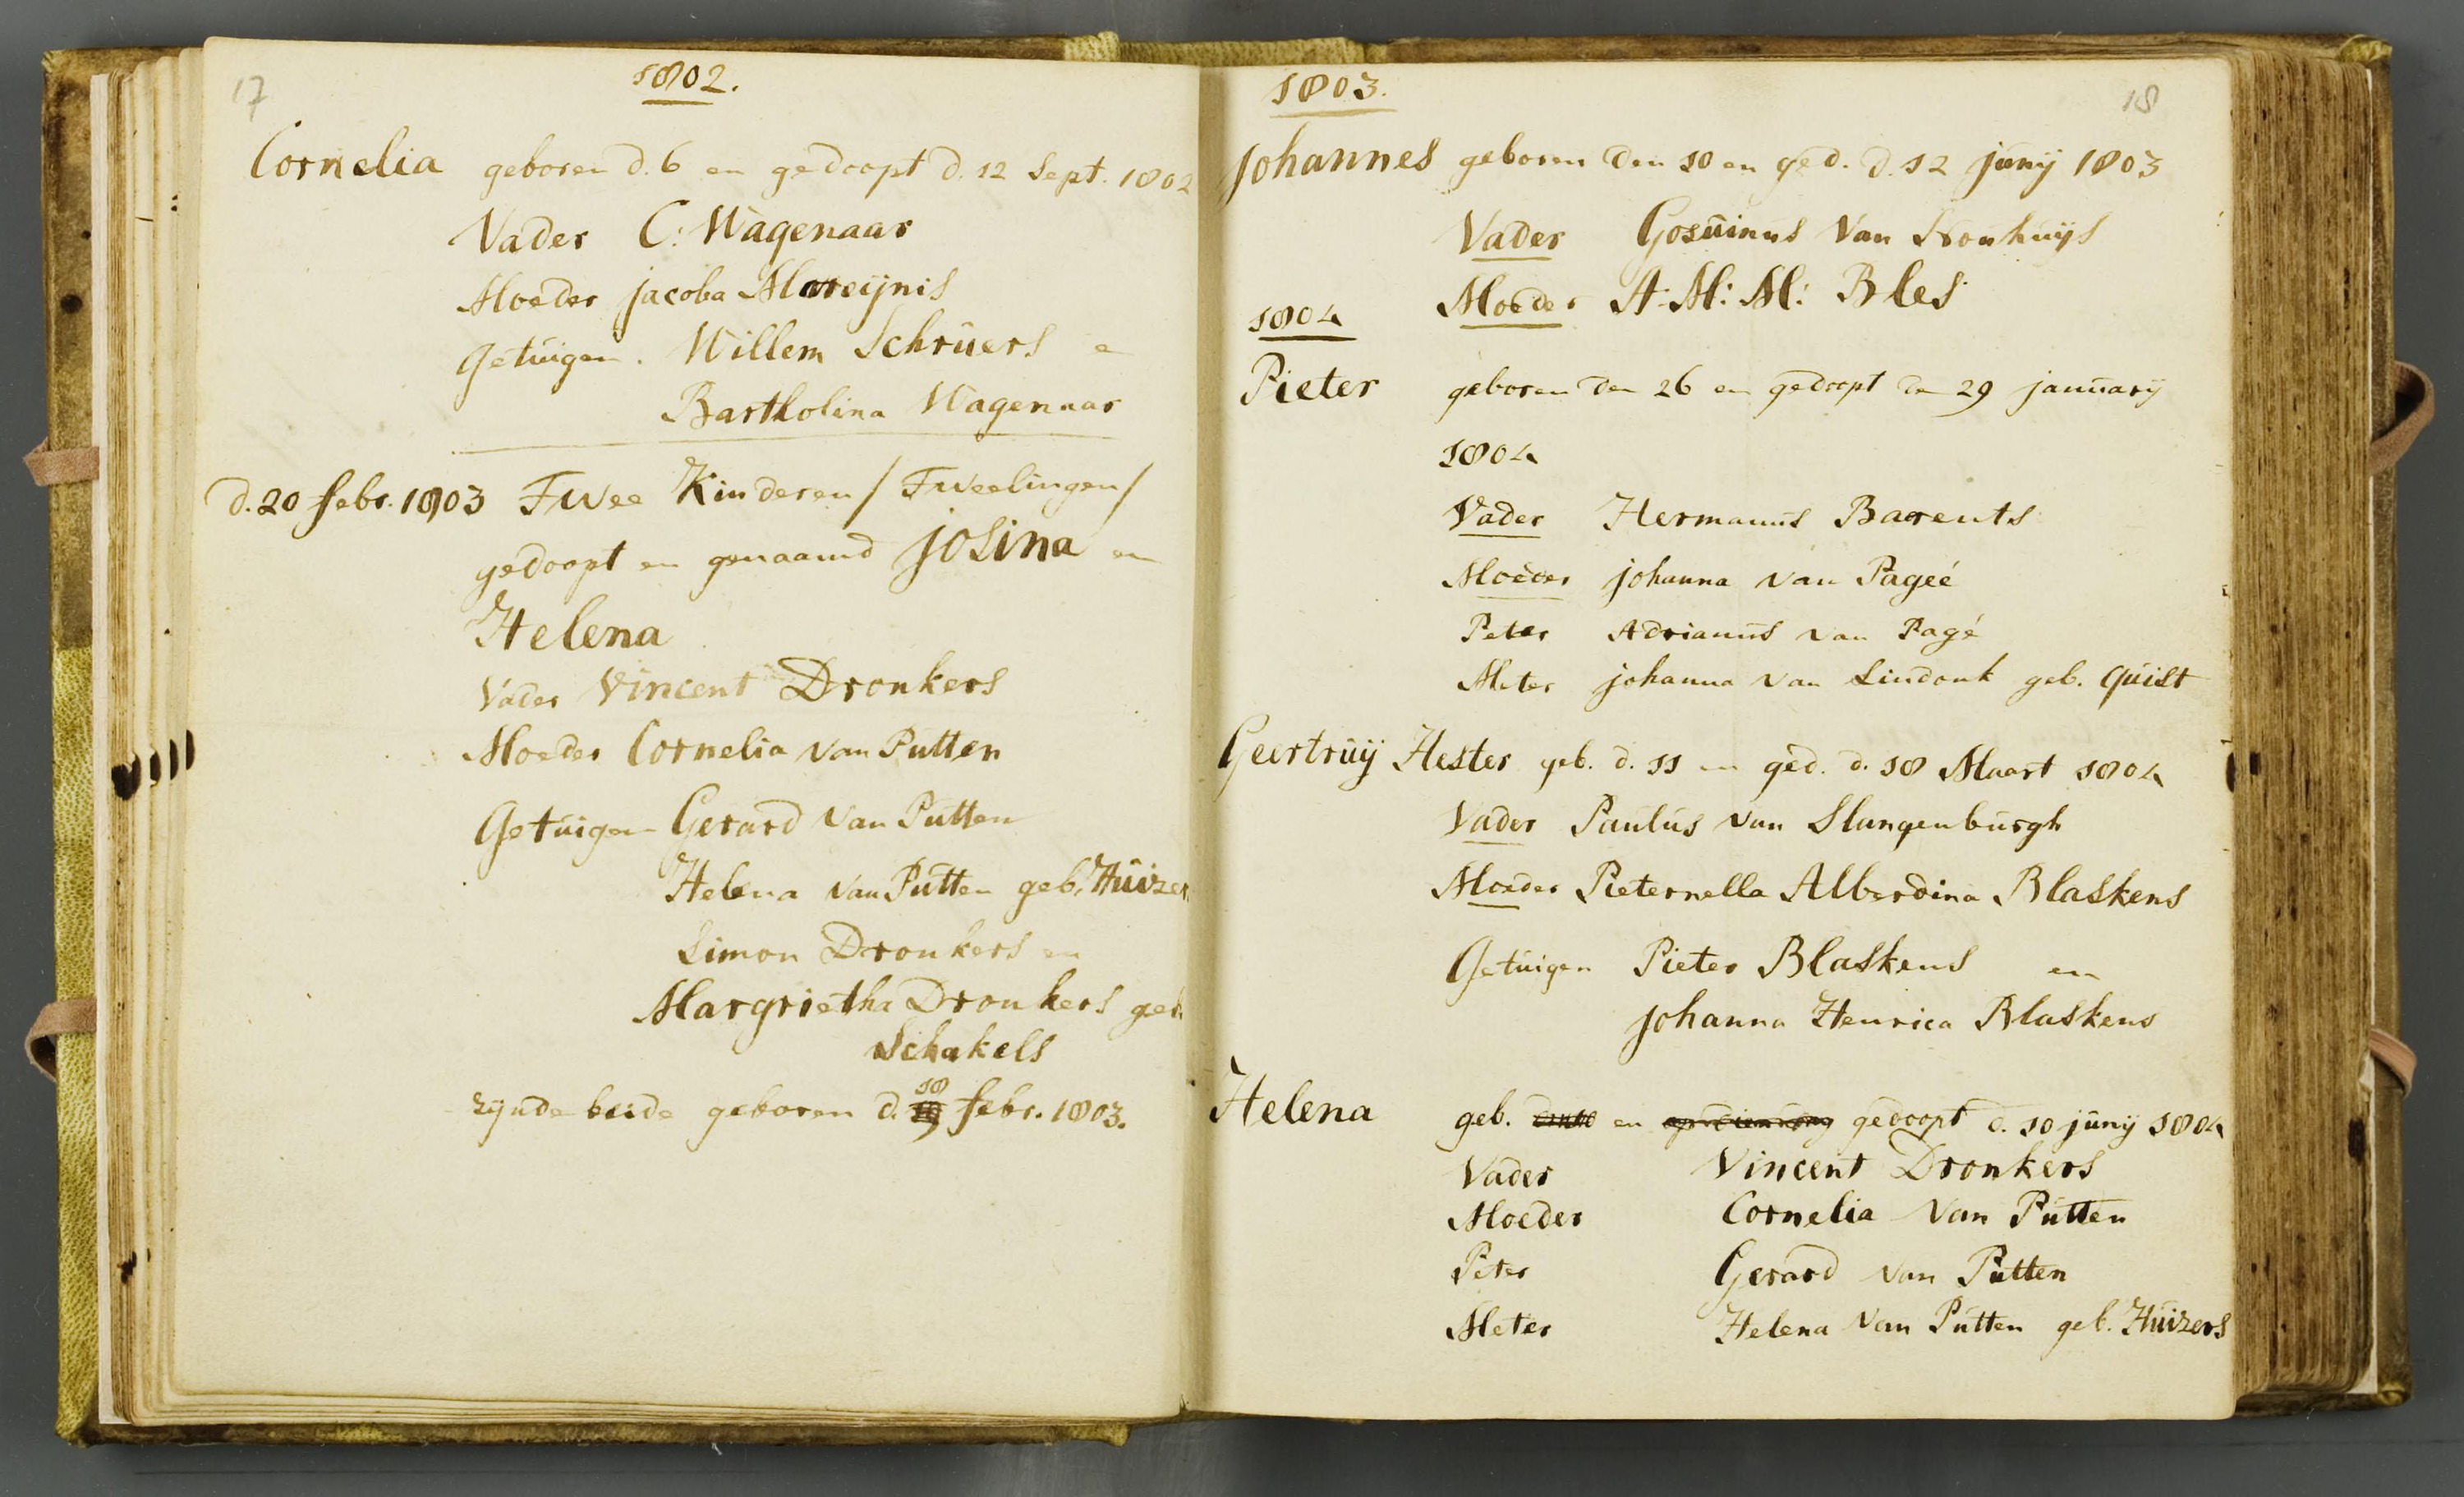 17
1802.
Cornelia geboren d. 6 en gedoopt d. 12 Sept. 1802
Vader C: Wagenaar
Moeder Jacoba
Getuigen. Willem Schrüers e
Bartholina Wagenaar
d. 20 febr. 1803 Twee Kinderen / Tweelingen /
gedoopt en genaamd Josina en
Helena
Vader Vincent Dronkers
Moeder Cornelia van Putten
Getuigen Gerard van Putten
Helena van Putten geb. Huizer
Simon Dronkers en
Margrietha Dronkers geb.
Schakels
zijnde beide geboren d. 18 febr. 1803.
1803.
18
Johannes geboren den 10 en ged. d. 12 junij 1803
Vader Gosuinus van
Moeder A: M: M: Bles
1804
Pieter geboren den 26 en gedoopt de 29 january
1804
Vader Hermanus Barents
Moeder Johanna van Pageé
Peter Adrianus van Pagé
Meter Johanna van Lindonk geb. Quist
Geertruij Hester geb. d. 11 en ged. d. 18 Maart 1804
Vader Paulus van Slangenburgh
Moeder Pieternella Alberdina Blaskens
Getuigen Pieter Blaskens en
Johanna Henrica Blaskens
Helena geb. en gedoopt d. 10 junij 1804
Vader Vincent Dronkers
Moeder Cornelia van Putten
Peter Gerard van Putten
Meter Helena van Putten geb. Huizers